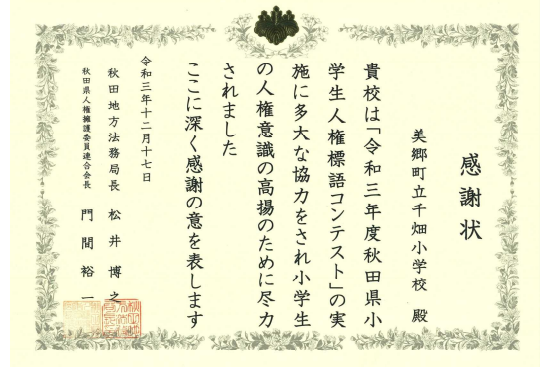 感謝状
美郷町立千畑小学校 殿
貴校は「令和三年度秋田県小
学生人権標語コンテスト」の実
施に多大な協力をされ小学生
の人権意識の高揚のために尽力
されました
ここに深く感謝の意を表します
令和三年十二月十七日
秋田地方法務局長 松井博之
秋田県人権擁護委員連合会長 門間裕一